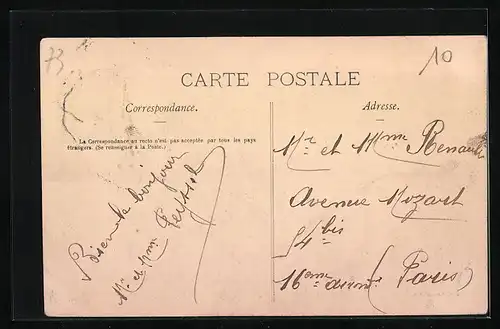 33
10
CARTE POSTALE
Correspondance.
Adresse.
La Correspondance au recto n'est pas acceptée par tous les pays
étrangers. (Se renseigner à la Poste.)
Bien le bonjour
Mr et Mme
Mr et Mme Renault
Avenue Mozart
54 bis
16eme arront (Paris)